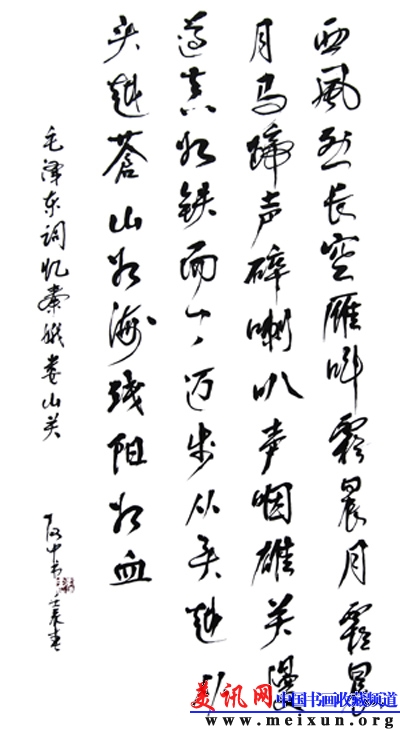 西風烈长空雁叫霜晨月霜晨
月马蹄声碎喇叭声咽雄关漫
道真如铁而今迈步从头越从
头越蒼山如海残阳如血
毛泽东词忆秦娥娄山关
美讯网 中国书画收藏频道
www.meixun.org